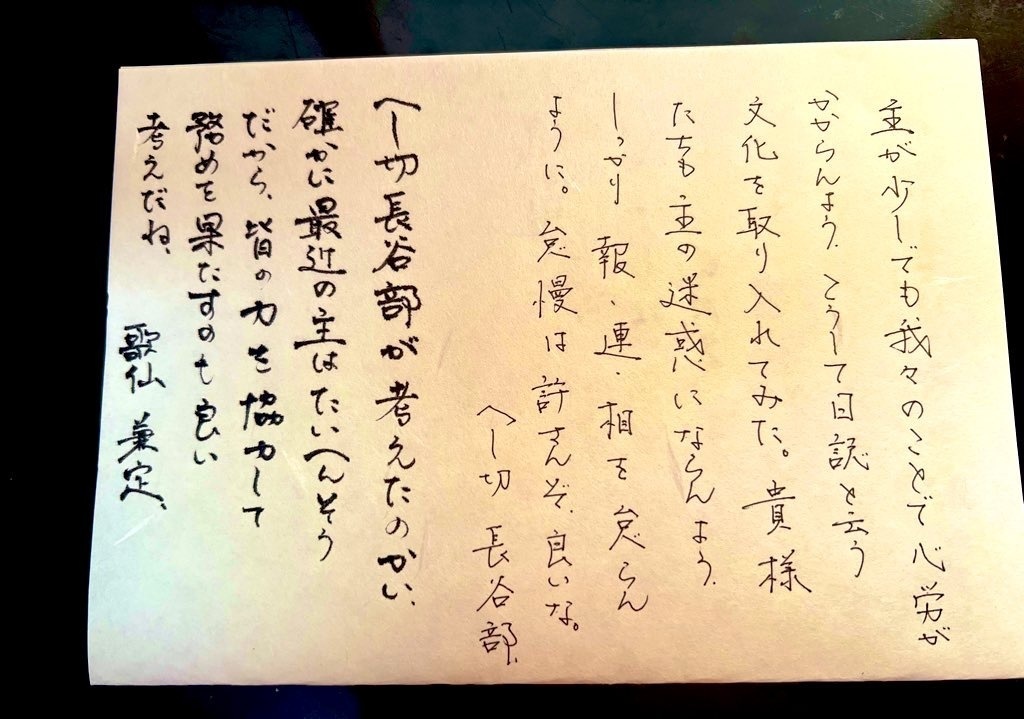 主が少しでも我々のことで心労が
かからんよう、こうして日誌と云う
文化を取り入れてみた。貴様
たちも主の迷惑にならんよう、
しっかり報、連、相を怠らん
ように。怠慢は許さんぞ、良いな。
へし切 長谷部、
へし切長谷部が考えたのかい、
確かに最近の主はたいへんそう
だから、皆の力を協力して
務めを果たすのも良い
考えだね、
歌仙 兼定、